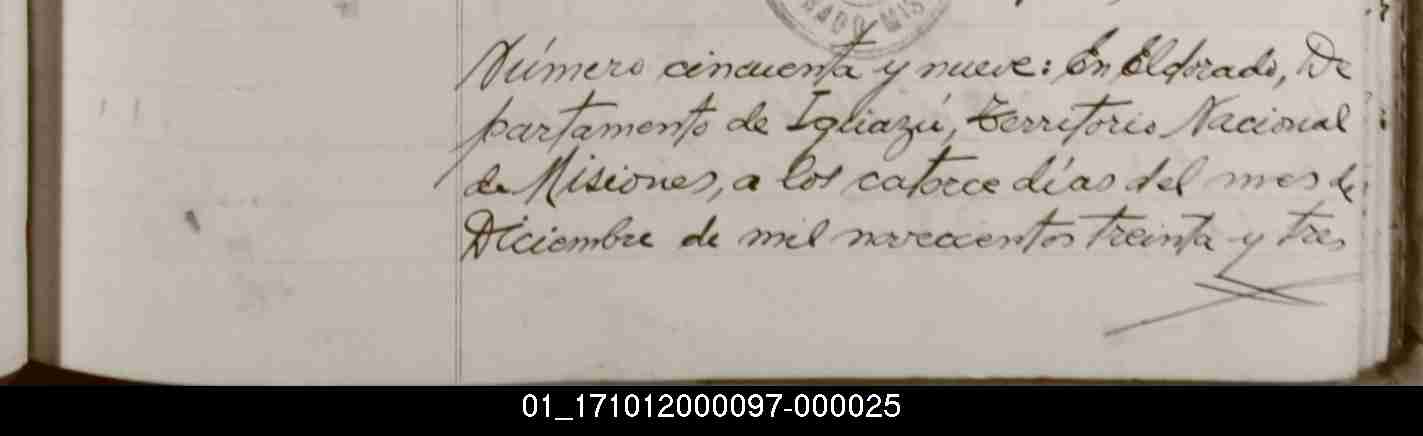 RADO MIS
Número cincuenta y nueve: En Eldorado, De
partamento de Iguazú, Territorio Nacional
de Misiones, a los catorce días del mes de
Diciembre de mil novecientos treinta y tres
01_171012000097-000025